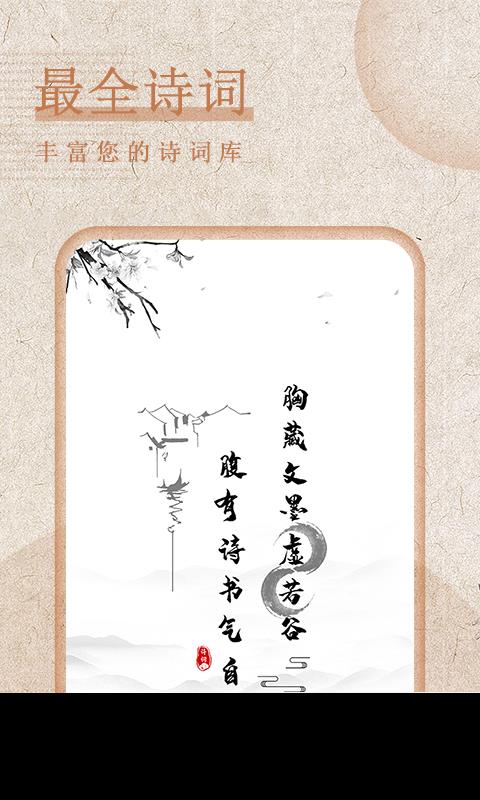 最全诗词
丰富您的诗词库
胸藏文墨虚若谷
腹有诗书气自
诗词